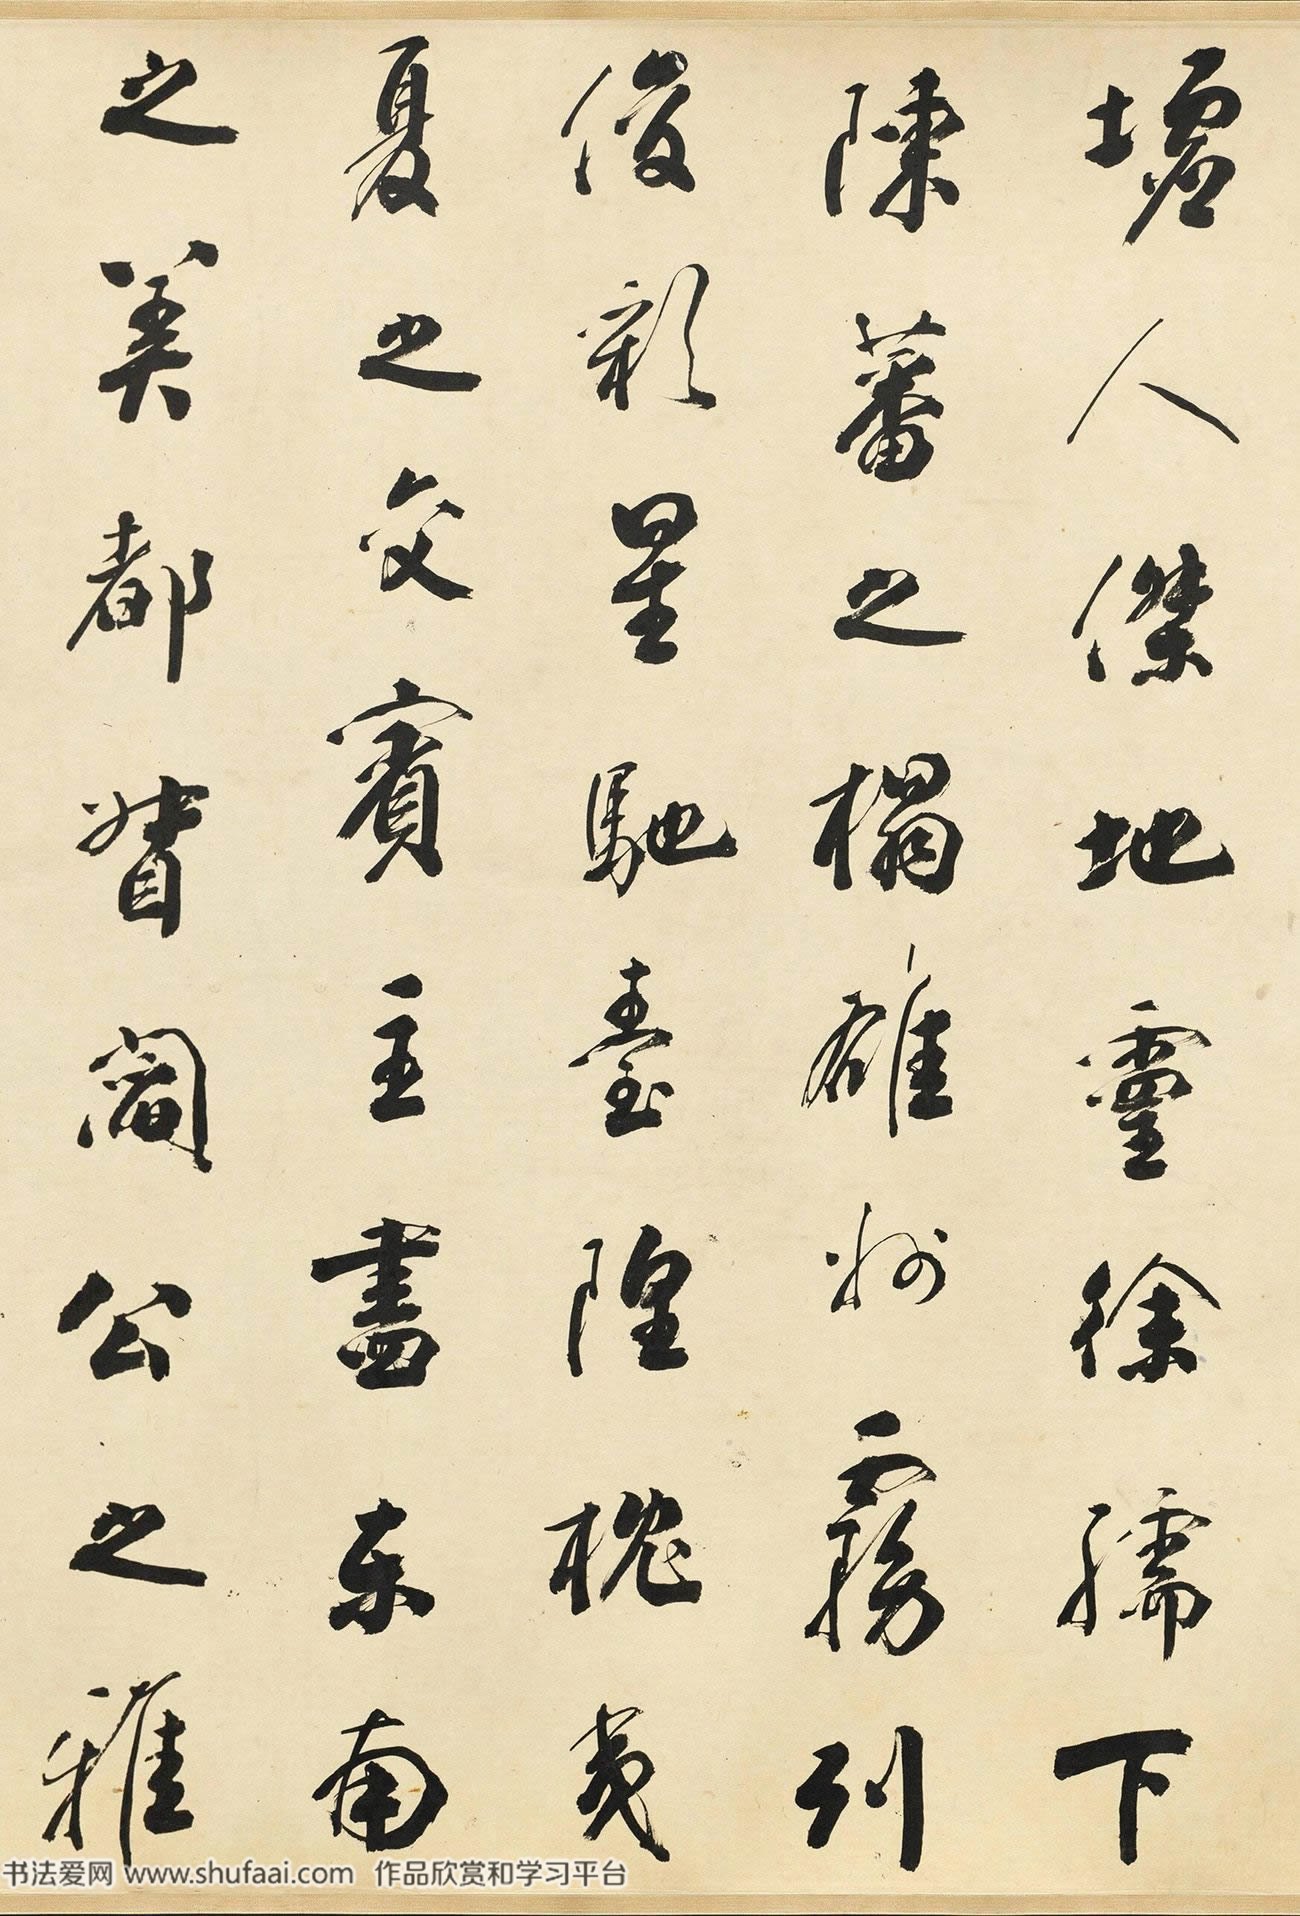 墟人傑地靈徐孺下
陳蕃之榻雄州霧列
俊彩星馳臺隍枕夷
夏之交賓主盡東南
之美都督閻公之雅
书法爱网 www.shufaai.com 作品欣赏和学习平台